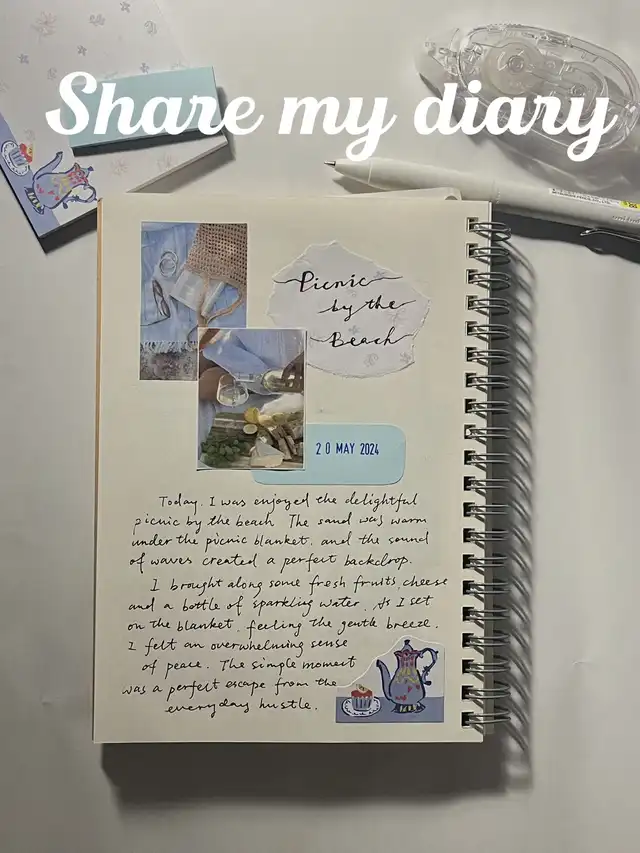 Share my diary
Picnic
by the
Beach
20 MAY 2024
Today, I was enjoyed the delightful
picnic by the beach. The sand was warm
under the picnic blanket, and the sound
of waves created a perfect backdrop.
I brought along some fresh fruits, cheese
and a bottle of sparkling water. As I set
on the blanket, feeling the gentle breeze.
I felt an overwhelming sense
of peace. The simple moment
was a perfect escape from the
everyday hustle.